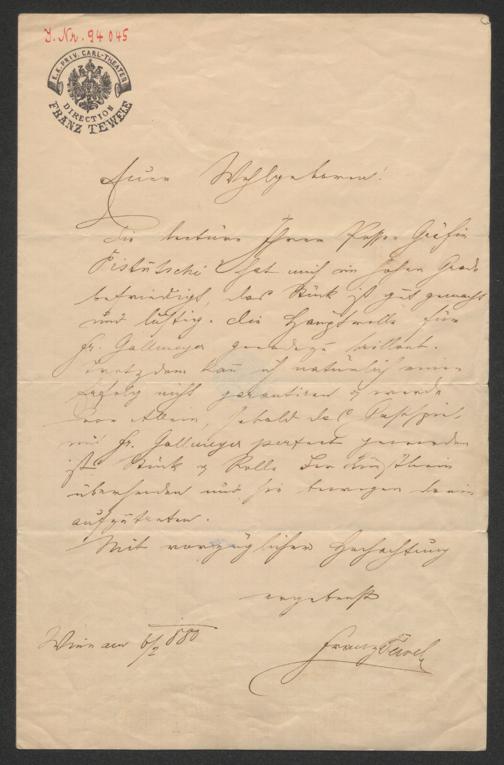 J. Nr. 94045
K.K. PRIV. CARL-THEATER
DIRECTION
FRANZ TEWELE
Euer Wohlgeboren!
Die Lectüre Ihrer Posse Gräfin
hat mich im hohen Grade
befriedigt, das Stück ist gut gemacht
und lustig. die Hauptrolle für
Fr. Gallmeyer geradezu brillant.
Trotzdem kann ich natürlich einen
Erfolg nicht garantiren & werde
sobald das Gastspiel
mit Fr. Gallmeyer perfect geworden
ist Stück & Rolle der Künstlerin
übersenden und sie bewegen darin
aufzutreten.
Mit vorzüglicher Hochachtung
ergebenst
Wien am 6/2 880
Franz Tewele